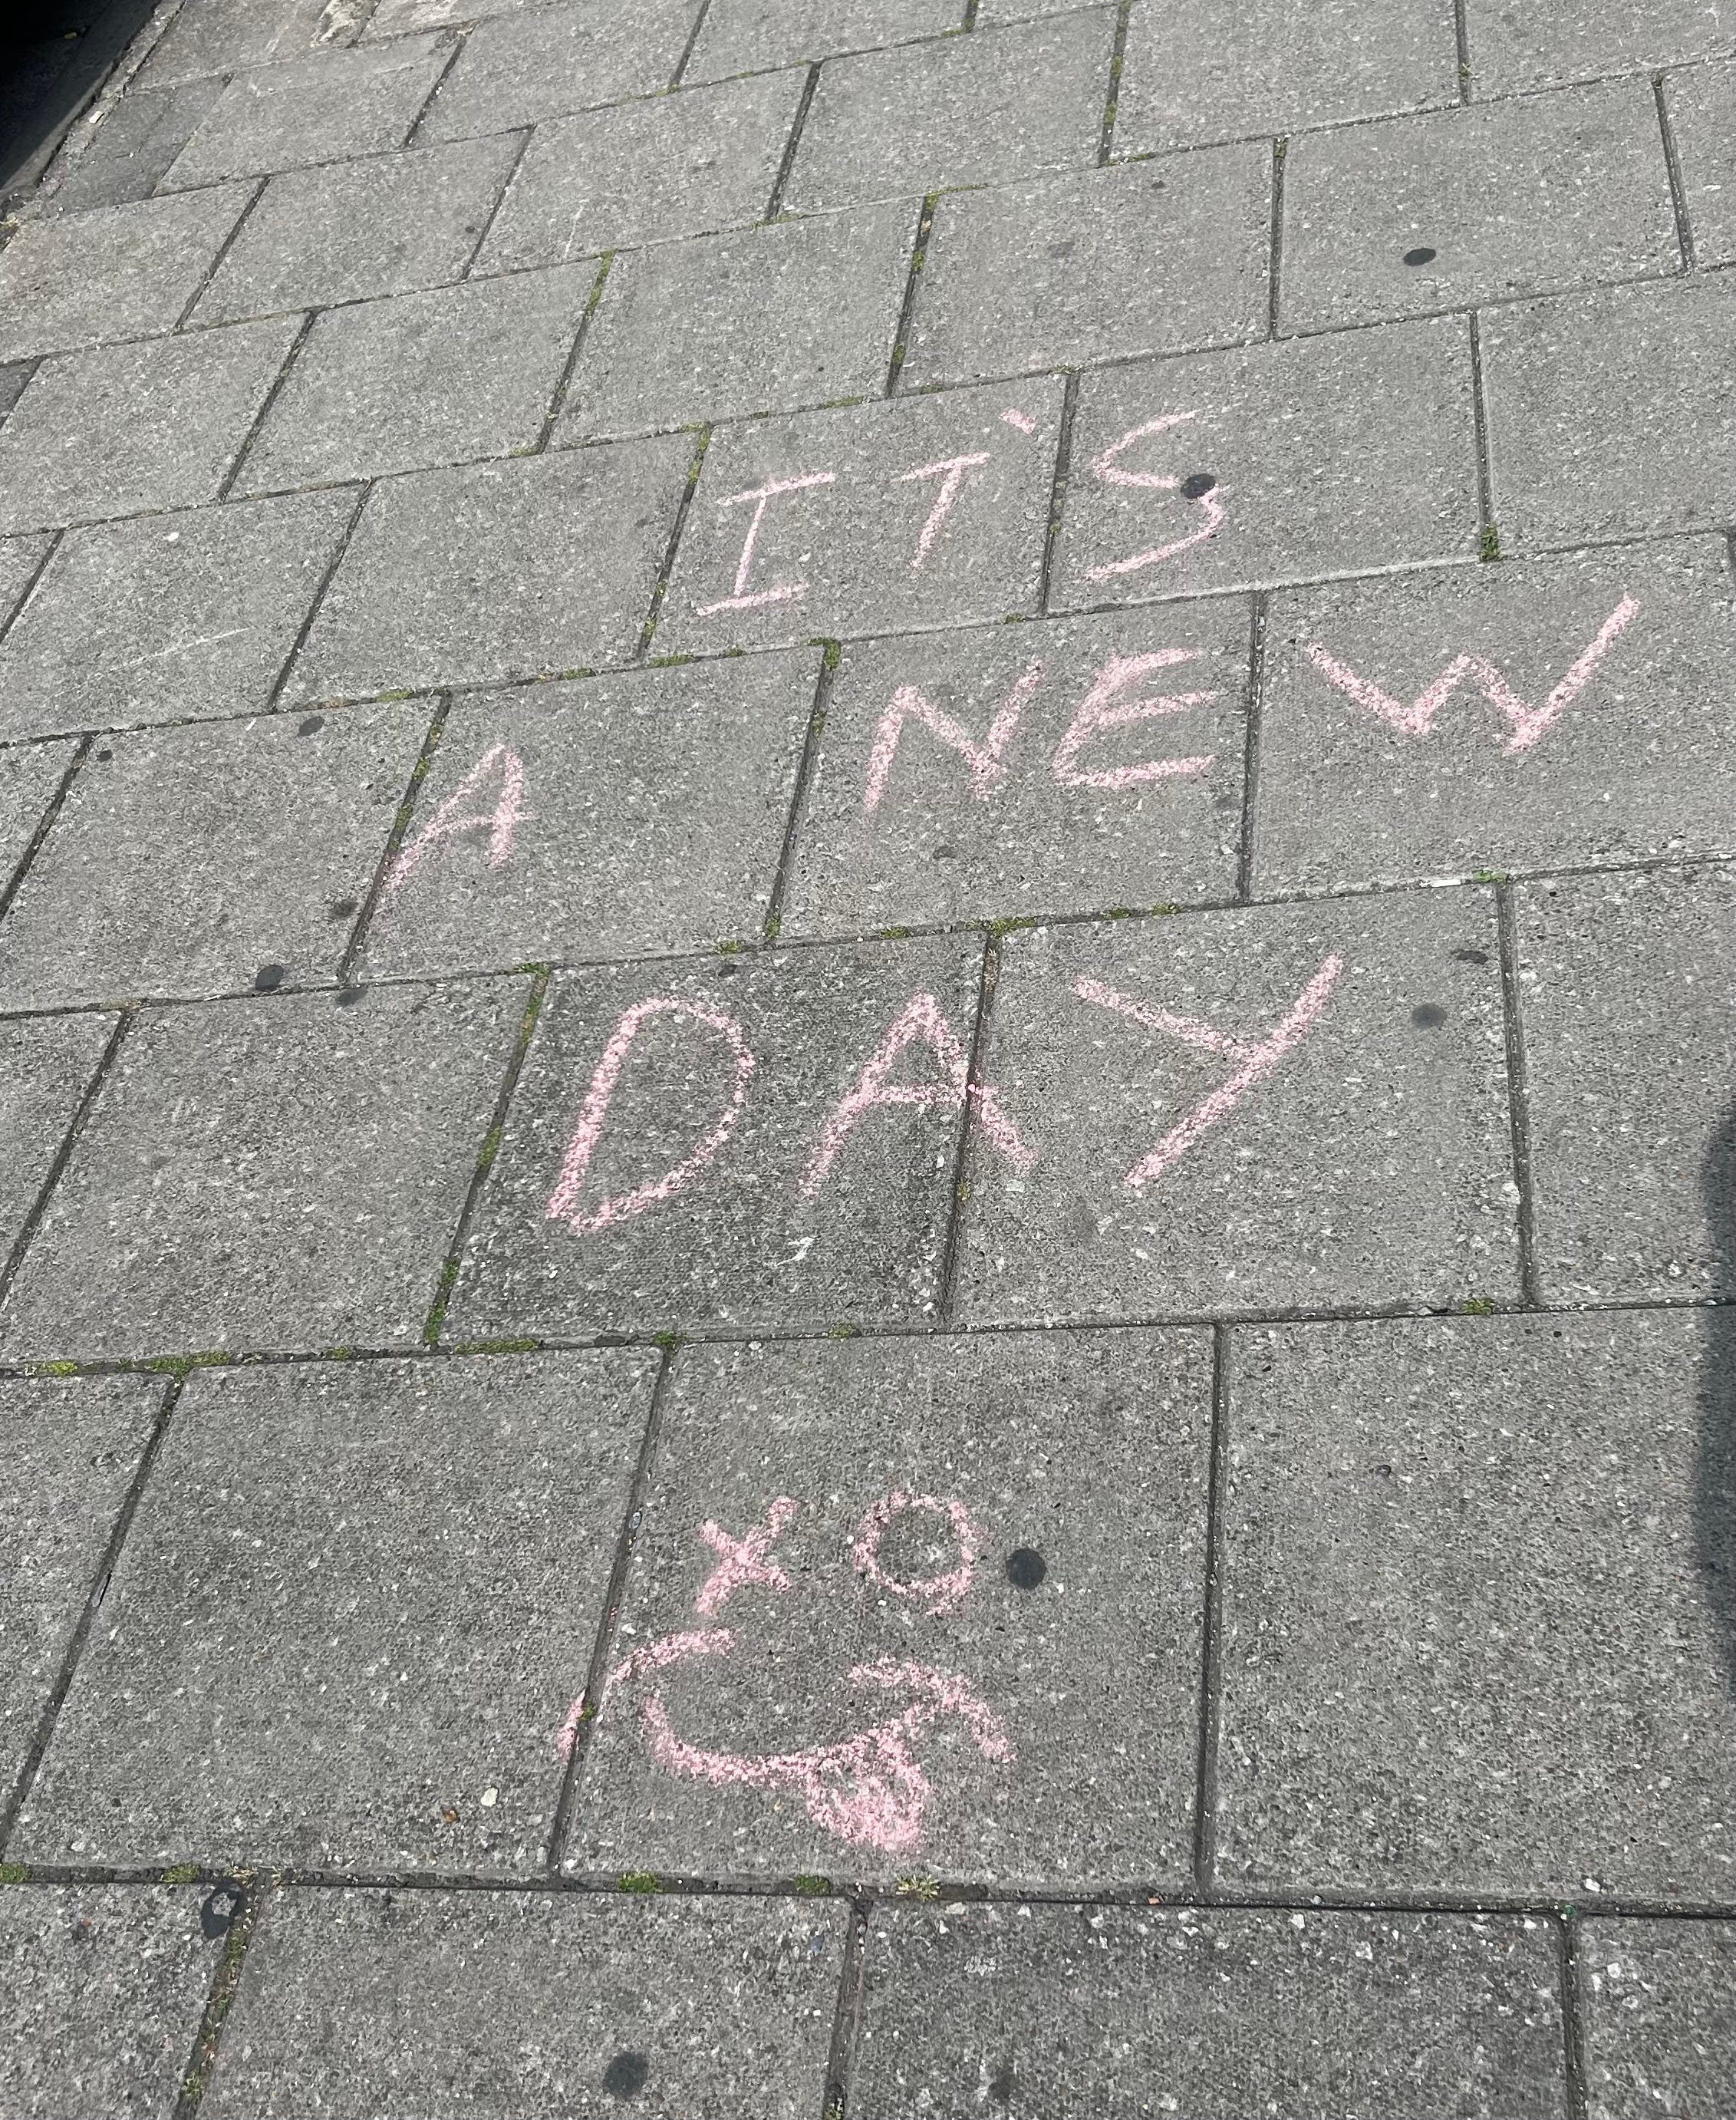 IT'S
A NEW
DAY
XO